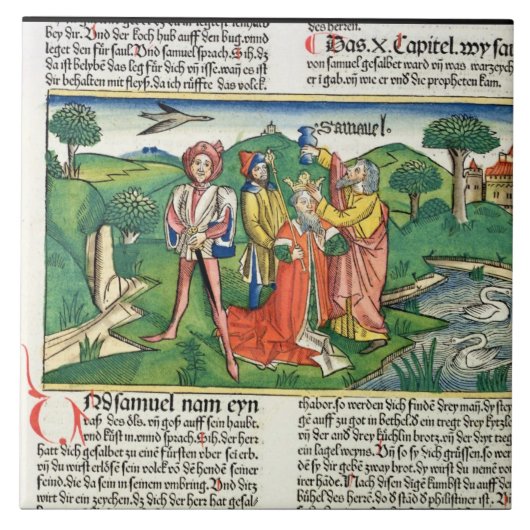 bey dir. Vnd der koch hub auff den bug. vnnd
leget den für saul. Vnd samuel sprach. Sih. dz
da ist belybẽ das leg für dich vñ isse. wañ es ist
dir behalten mit fleyß. da ich rüffte das volck.
des herren.
Das. X. Capitel. wy sau
von samuel gesalbet ward vñ was warzeych
er ĩ gab. vñ wie er vnd die propheten kam.
Samuel.
VNd samuel nam eyn
vaß des öls. vñ goß auff sein haubt.
vnd küst in. vnnd sprach. Sih. der herr
hatt dich gesalbet zu einẽ fürsten vber sei erb.
vñ du wirst erlösẽ sein volck võ dẽ hende seiner
feind. die da sein in seinem vmbring. Vnd ditz
wirt dir ein zeychen. dz dich der herr hat gesal
thabor. so werden dich findẽ drey mañ. dy steȳ
gẽ auff zu got in bethel. d̃ ein tregt drey kytzlẽ
vñ der and drey küchlin brotz. vñ der dryt tregt
ein lagel weyns. Vñ so sy dich grüssen. so werd
dẽ sy dir gebẽ zway brot. dy wirst du nemẽ võ
irer hãde. Nach disen dingẽ kumbst du auff dẽ
bühel des herrẽ. do d̃ stãd d̃ philistiner ist. Vñ